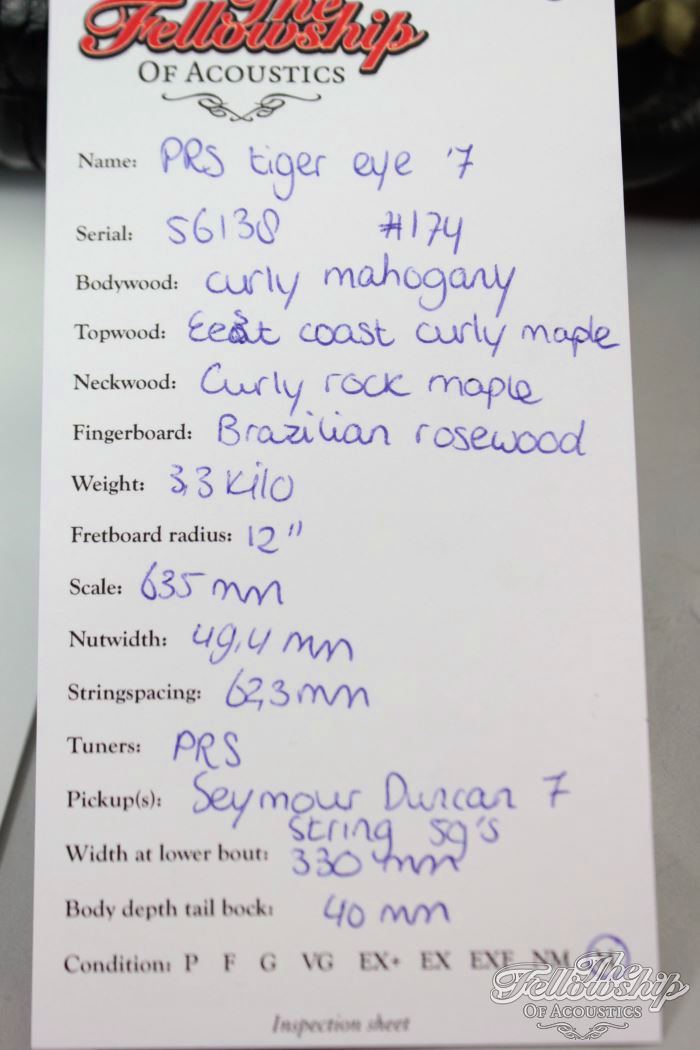 The
Fellowship
OF ACOUSTICS
Name: PRS tiger eye '7
Serial: S6138 #174
Bodywood: curly mahogany
Topwood: Eeast coast curly maple
Neckwood: Curly rock maple
Fingerboard: Brazilian rosewood
Weight: 3,3 Kilo
Fretboard radius: 12"
Scale: 635 mm
Nutwidth: 49,4 mm
Stringspacing: 62,3 mm
Tuners: PRS
Pickup(s): Seymour Duncan 7
string sg's
Width at lower bout: 330 mm
Body depth tail bock: 40 mm
Condition: P F G VG EX+ EX EXF NM
Inspection sheet
The
Fellowship
OF ACOUSTICS